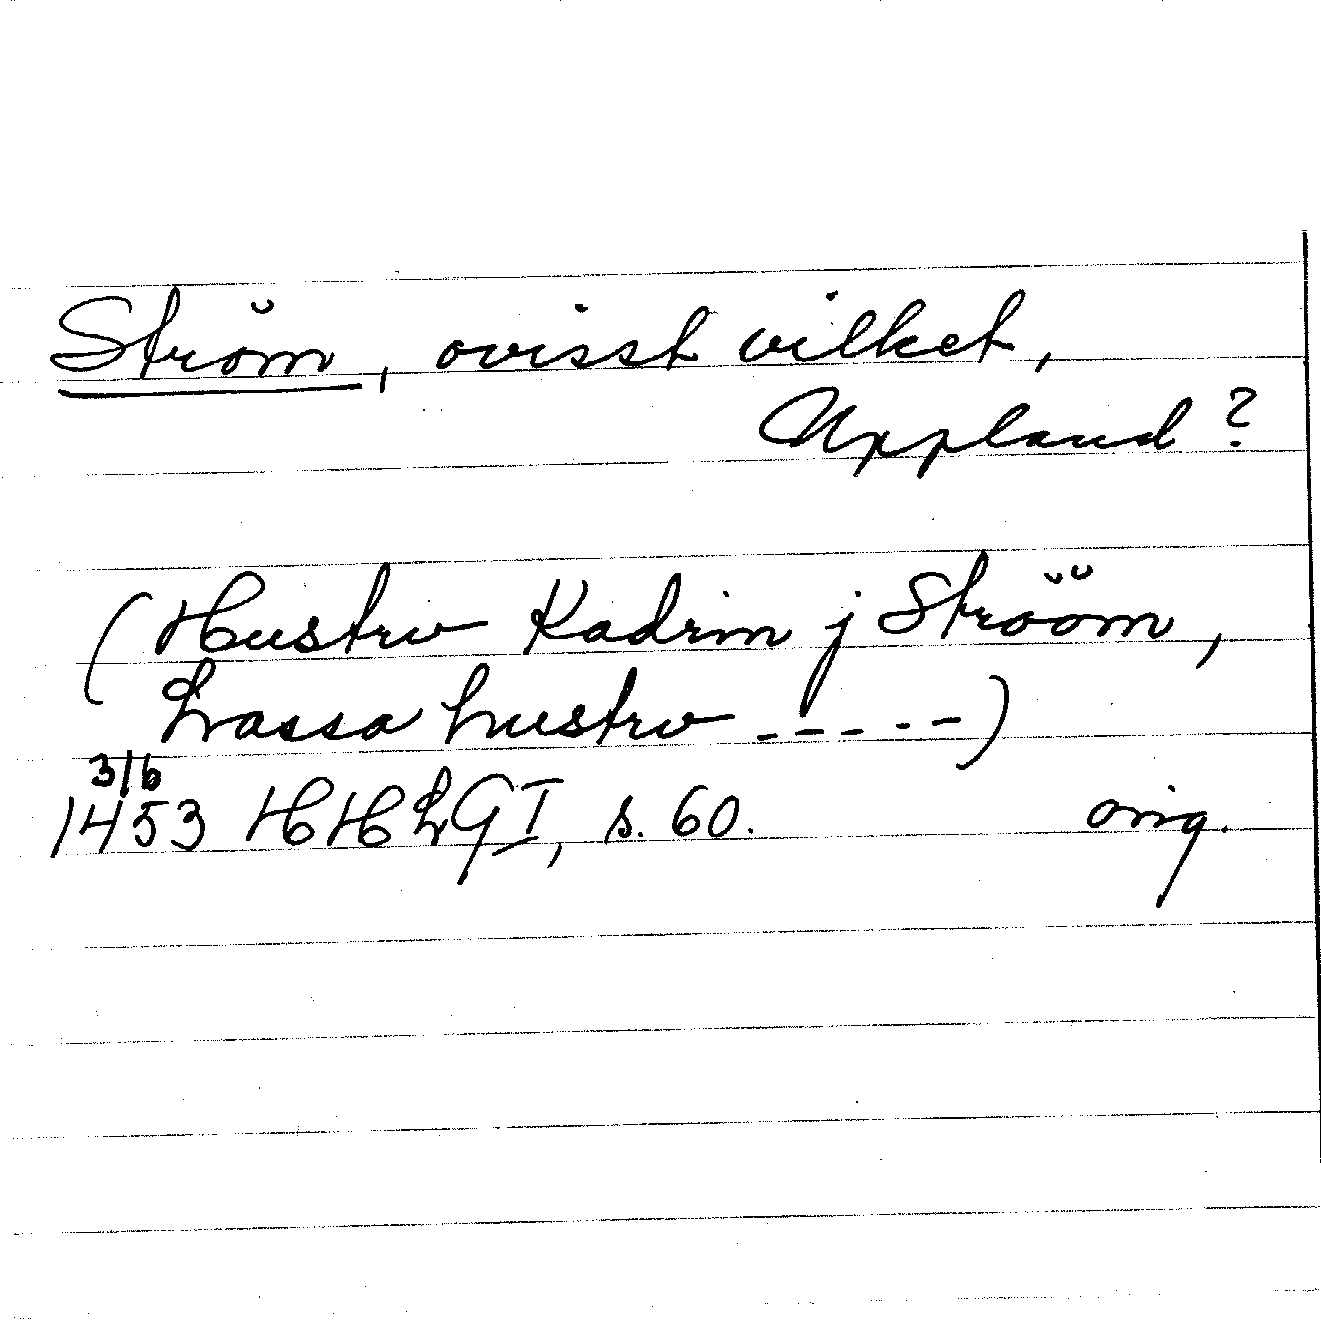 Ström, ovisst vilket,
Uppland?
(Hustrv Kadrin j Strööm,
Lassa hustrv -----)
3/6
1453 HHLG I, s. 60. orig.